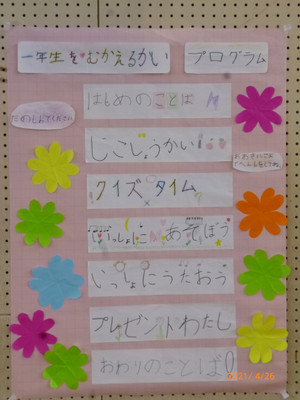 一年生をむかえるかい
プログラム
はじめのことば
じこしょうかい
クイズタイム
いっしょにあそぼう
いっしょにうたおう
プレゼントわたし
おわりのことば
2021/4/26